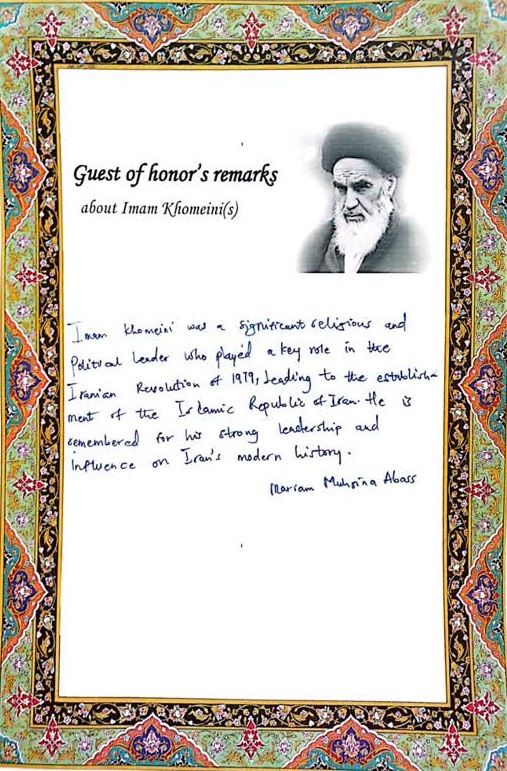 Guest of honor's remarks
about Imam Khomeini(s)
Imam Khomeini was a significant religious and
Political Leader who played a key role in the
Iranian Revolution of 1979, Leading to the establish-
ment of the Islamic Republic of Iran. He is
remembered for his strong leadership and
Influence on Iran's modern history.
Mariam Abass